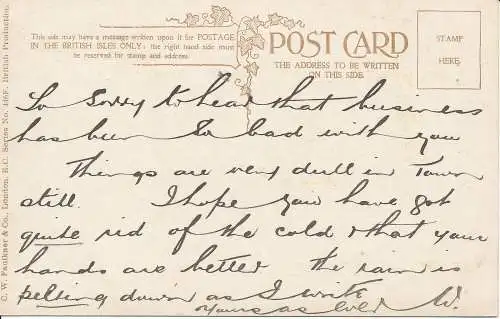 This side may have a message written upon it for POSTAGE
IN THE BRITISH ISLES ONLY: the right hand side must
be reserved for stamp and address.
POST CARD
THE ADDRESS TO BE WRITTEN
ON THIS SIDE.
STAMP
HERE.
C. W. Faulkner & Co., London, E.C. Series No. British Production.
So sorry to hear that business
has been so bad with you
Things are very dull in Town
still. I hope you have got
quite rid of the cold & that your
hands are better the rain is
pelting down as I write
Yours as Ever W.